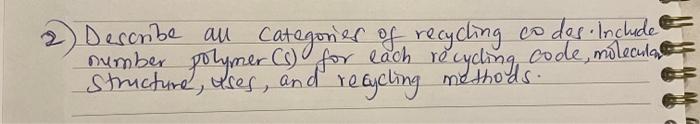 2) Describe all categories of recycling codes. Include
number polymer(s) for each recycling code, molecular
structure, uses, and recycling methods.